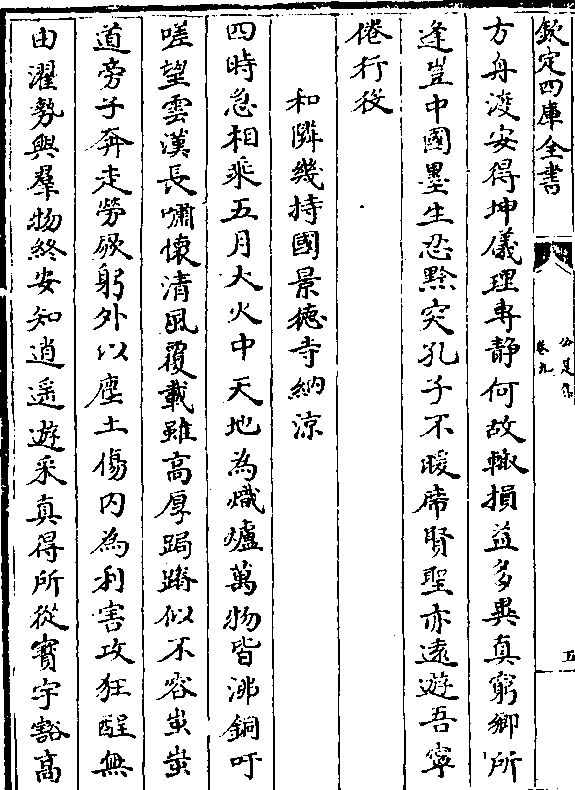 欽定四庫全書
公是集
卷九
五
方舟渡安得坤儀理專靜何故輙損益多與真窮鄉所
逢豈中國墨生忍黔突孔子不暖席賢聖亦遠遊吾寧
倦行役
和隣幾持國景徳寺納涼
四時急相乘五月大火中天地為熾爐萬物皆沸銅吁
嗟望雲漢長嘯懐清風覆載雖高厚跼蹐似不容蚩蚩
道旁子奔走勞厥躬外以塵土傷内為利害攻狂酲無
由濯勢與羣物終安知逍遥遊采真得所從寳宇豁高